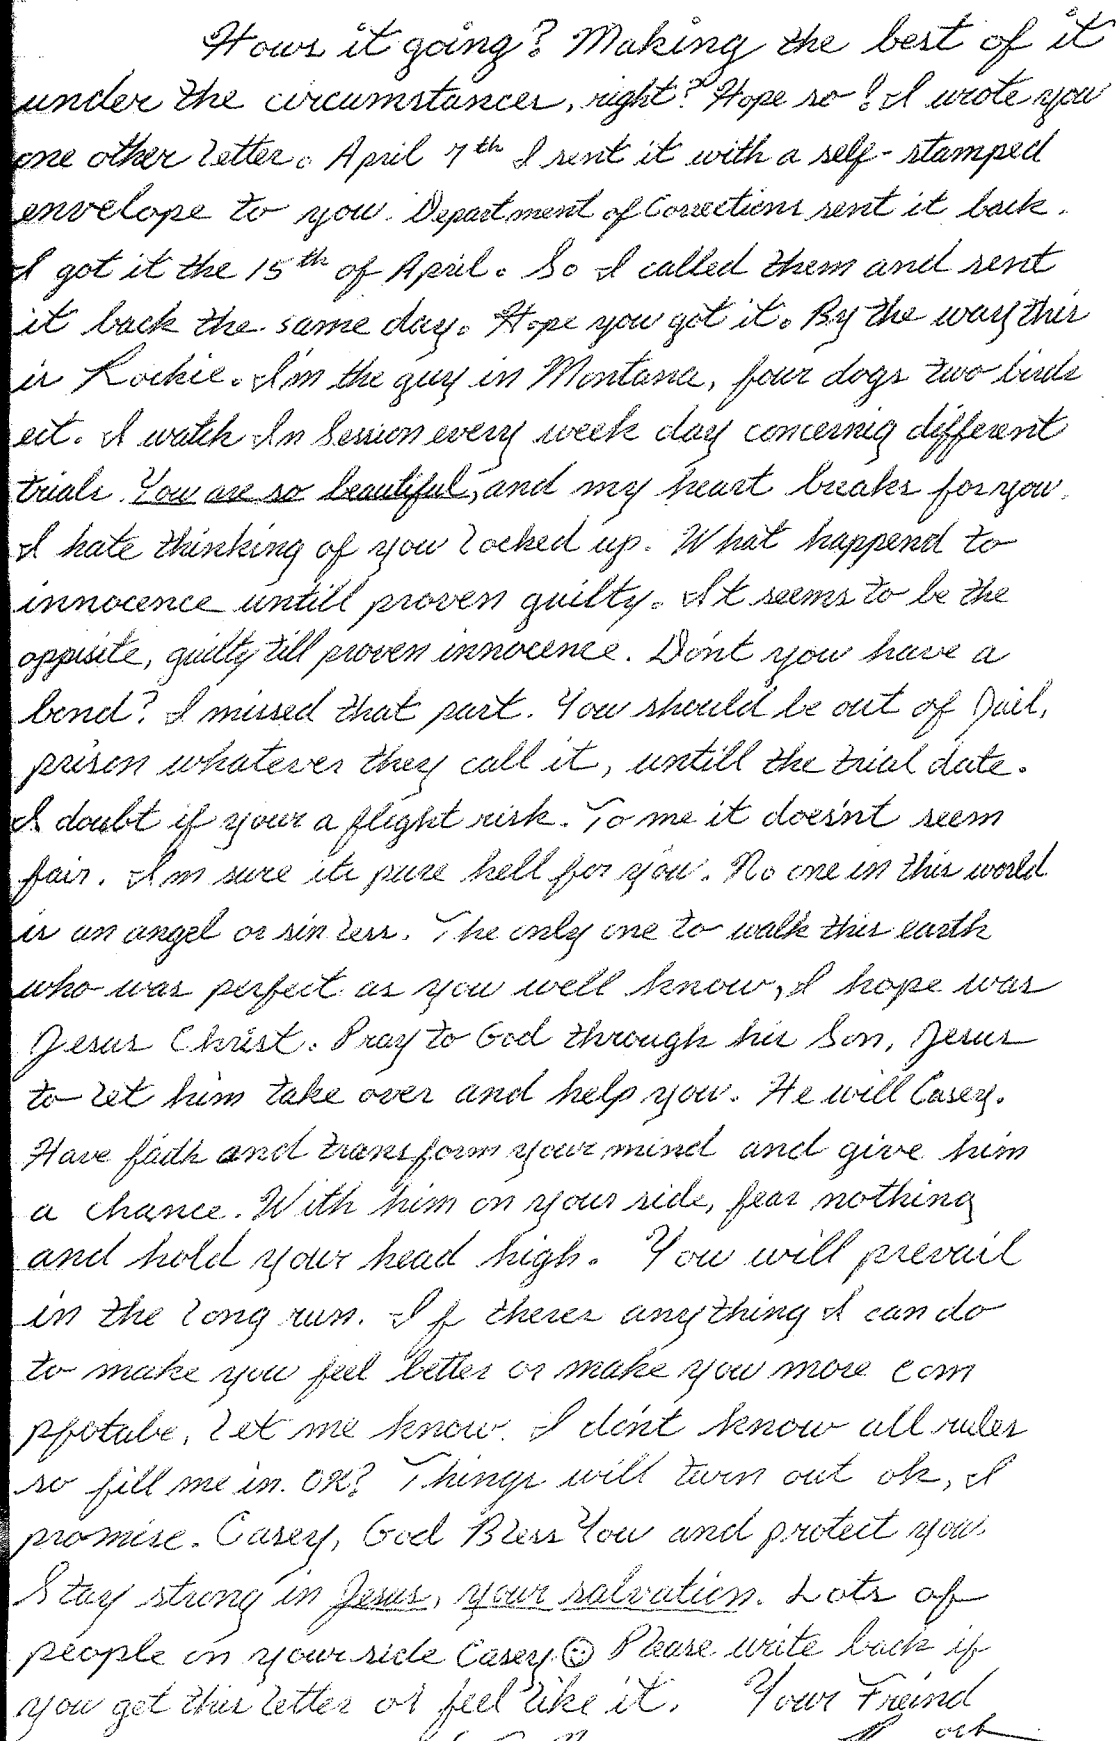 Hows it going? Making the best of it
under the circumstances, right? Hope so! I wrote you
one other letter. April 7th I sent it with a self-stamped
envelope to you. Department of Corrections sent it back.
I got it the 15th of April. So I called them and sent
it back the same day. Hope you got it. By the way this
is Rockie. I'm the guy in Montana, four dogs two birds
ect. I watch In Session every week day concernig different
trials. You are so beautiful, and my heart breaks for you.
I hate thinking of you locked up. What happend to
innocence untill proven guilty. It seems to be the
oppisite, guilty till proven innocence. Don't you have a
bond? I missed that part. You should be out of Jail,
prison whatever they call it, untill the trial date.
I doubt if your a flight risk. To me it does'nt seem
fair. Im sure its pure hell for you. No one in this world
is an angel or sin less. The only one to walk this earth
who was perfect as you well know, I hope was
Jesus Christ. Pray to God through his Son, Jesus
to let him take over and help you. He will Casey.
Have faith and transform your mind and give him
a chance. With him on your side, fear nothing
and hold your head high. You will prevail
in the long run. If theres anything I can do
to make you feel better or make you more com
pfotabe, let me know. I don't know all rules
so fill me in. OK? Things will turn out ok, I
promise. Casey, God Bless You and protect you.
Stay strong in Jesus, your salvation. Lots of
people on your side Casey ☺ Please write back if
you get this letter or feel like it. Your Freind